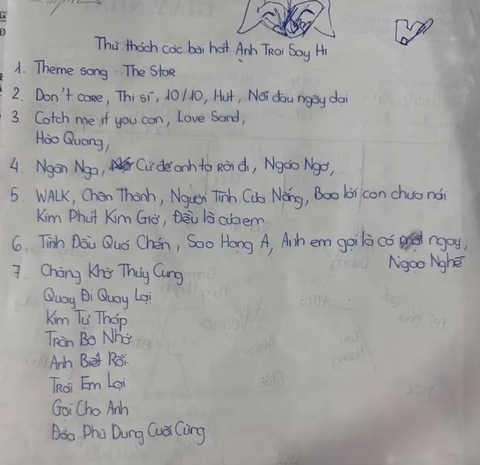 Thử thách các bài hát Anh Trai Say Hi
1. Theme song : The Star
2. Don't care, Thi sĩ, 10/10, Hut, Nỗi đau ngây dại
3. Catch me if you can, Love Sand,
Hào Quang,
4. Ngân Nga, Cứ để anh ta rời đi, Ngáo Ngơ,
5. WALK, Chân Thành, Người Tình Của Nắng, Bao lời con chưa nói
Kim Phút Kim Giờ, Đầu là của em
6. Tình Đầu Quá Chén, Sao Hạng A, Anh em gọi là có mặt ngay,
Ngạo Nghễ
7. Chàng Khờ Thủy Cung
Quay Đi Quay Lại
Kim Tự Tháp
Trần Bo Nhớ
Anh Biết Rồi
Trói Em Lại
Gọi Cho Anh
Đóa Phù Dung Cuối Cùng